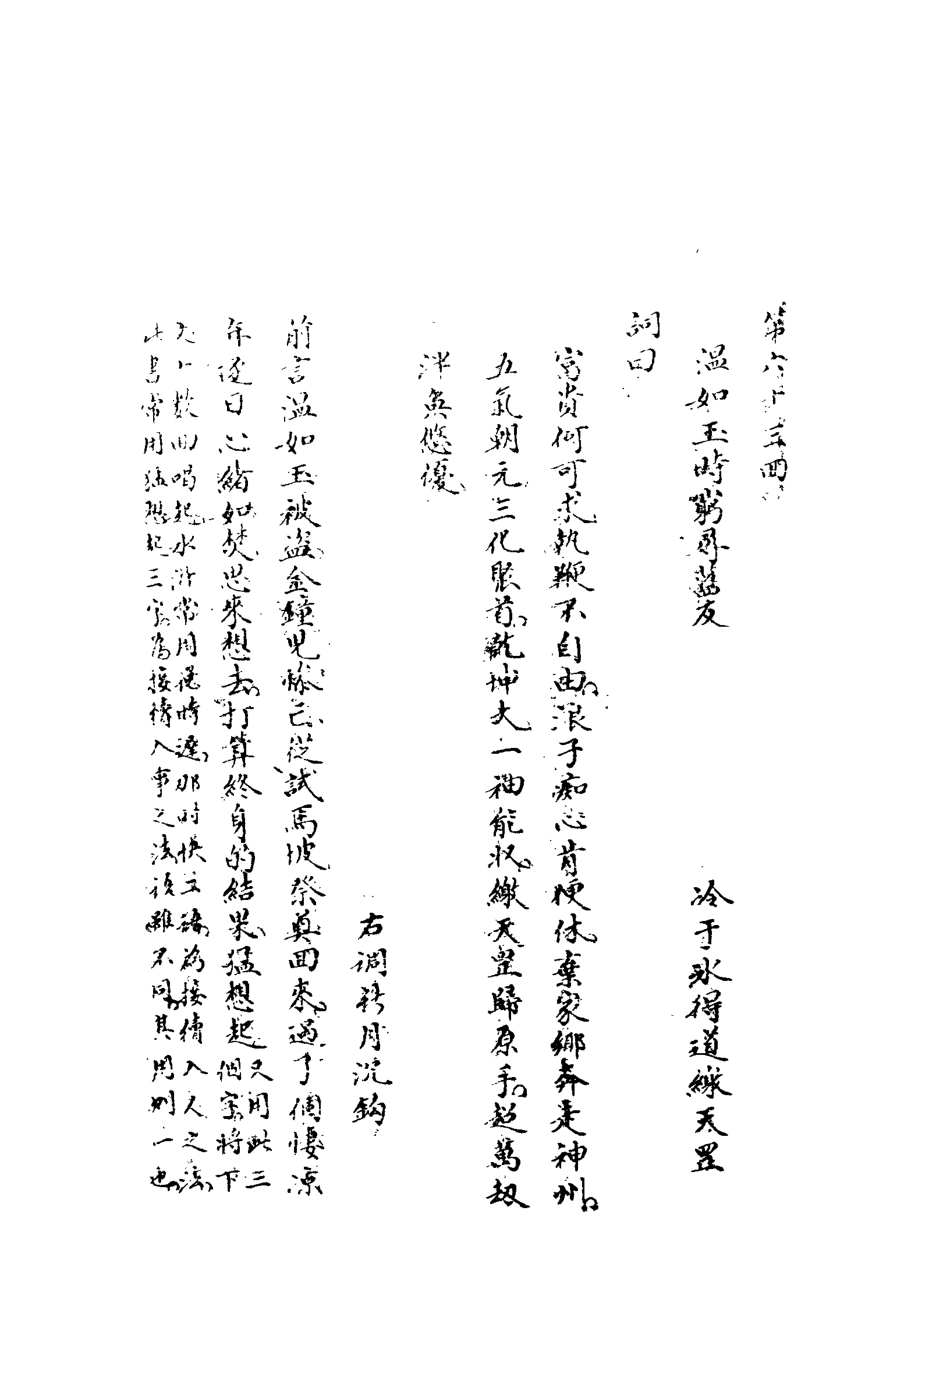 第六十三回
溫如玉時窮尋舊友　冷于冰得道繳天罡
詞曰
富貴何可求執鞭不自由浪子痴心肯便休棄家鄉奔走神州
五氣朝元三化聚首乾坤大一袖能收繳天罡歸原手超萬劫
泮奐悠優
右調月沉鈎
前言溫如玉被盜金鐘兒慘亡從試馬坡祭奠回來過了個悽涼
年逐日心緒如焚思來想去打算終身的結果猛想起
又用此三
個字將下
文數回喝起水滸常用說時遲那时快二語為接續入人之法
此書常用猛想起三字為接續入事之法語雖不同其用則一也